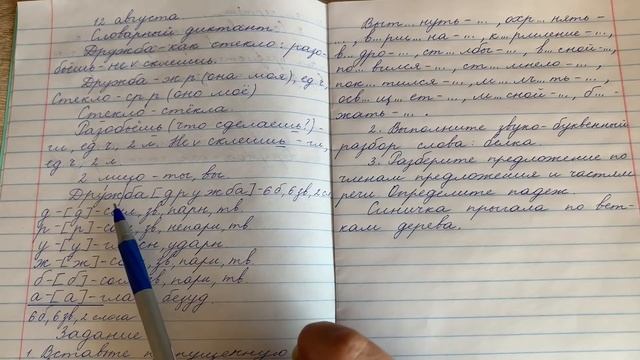 12 августа
Словарный диктант.
Дружба-как стекло: разо-
бьёшь-не склеишь.
Дружба-ж.р (она моя), ед.ч,
Стекло-ср.р (оно моё)
Стекло-стёкла.
Разобьёшь (что сделаешь?)-
гл, ед.ч, 2 л. Не склеишь-гл,
ед.ч 2 л
2 лицо-ты, вы.
Дружба [дружба]-6 б, 6 зв, 2 сл
д-[д]- зв, парн, тв.
р-[р]- зв, непарн, тв.
у-[у]- ударн.
ж-[ж]- зв, парн, тв.
б-[б]-согл зв, парн, тв
а-[а]-глас безуд.
6 б, 6 зв, 2 слога
Задание
1. Вставьте пропущенную
Выт...нуть-..., охр...нять-
..., в...рш...на-..., к...рмление-...,
в...дро-..., ст...лбы-..., в...сной-...,
по...вился-..., ст...мнело-...,
пок...тился-..., м...лч...ть-...,
осв...щ...ет-..., л...сной-..., б...-
жать-... .
2. Выполните звуко-буквенный
разбор слова: белка.
3. Разберите предложение по
членам предложения и частям
речи. Определите падеж
Синичка прыгала по вет-
кам дерева.